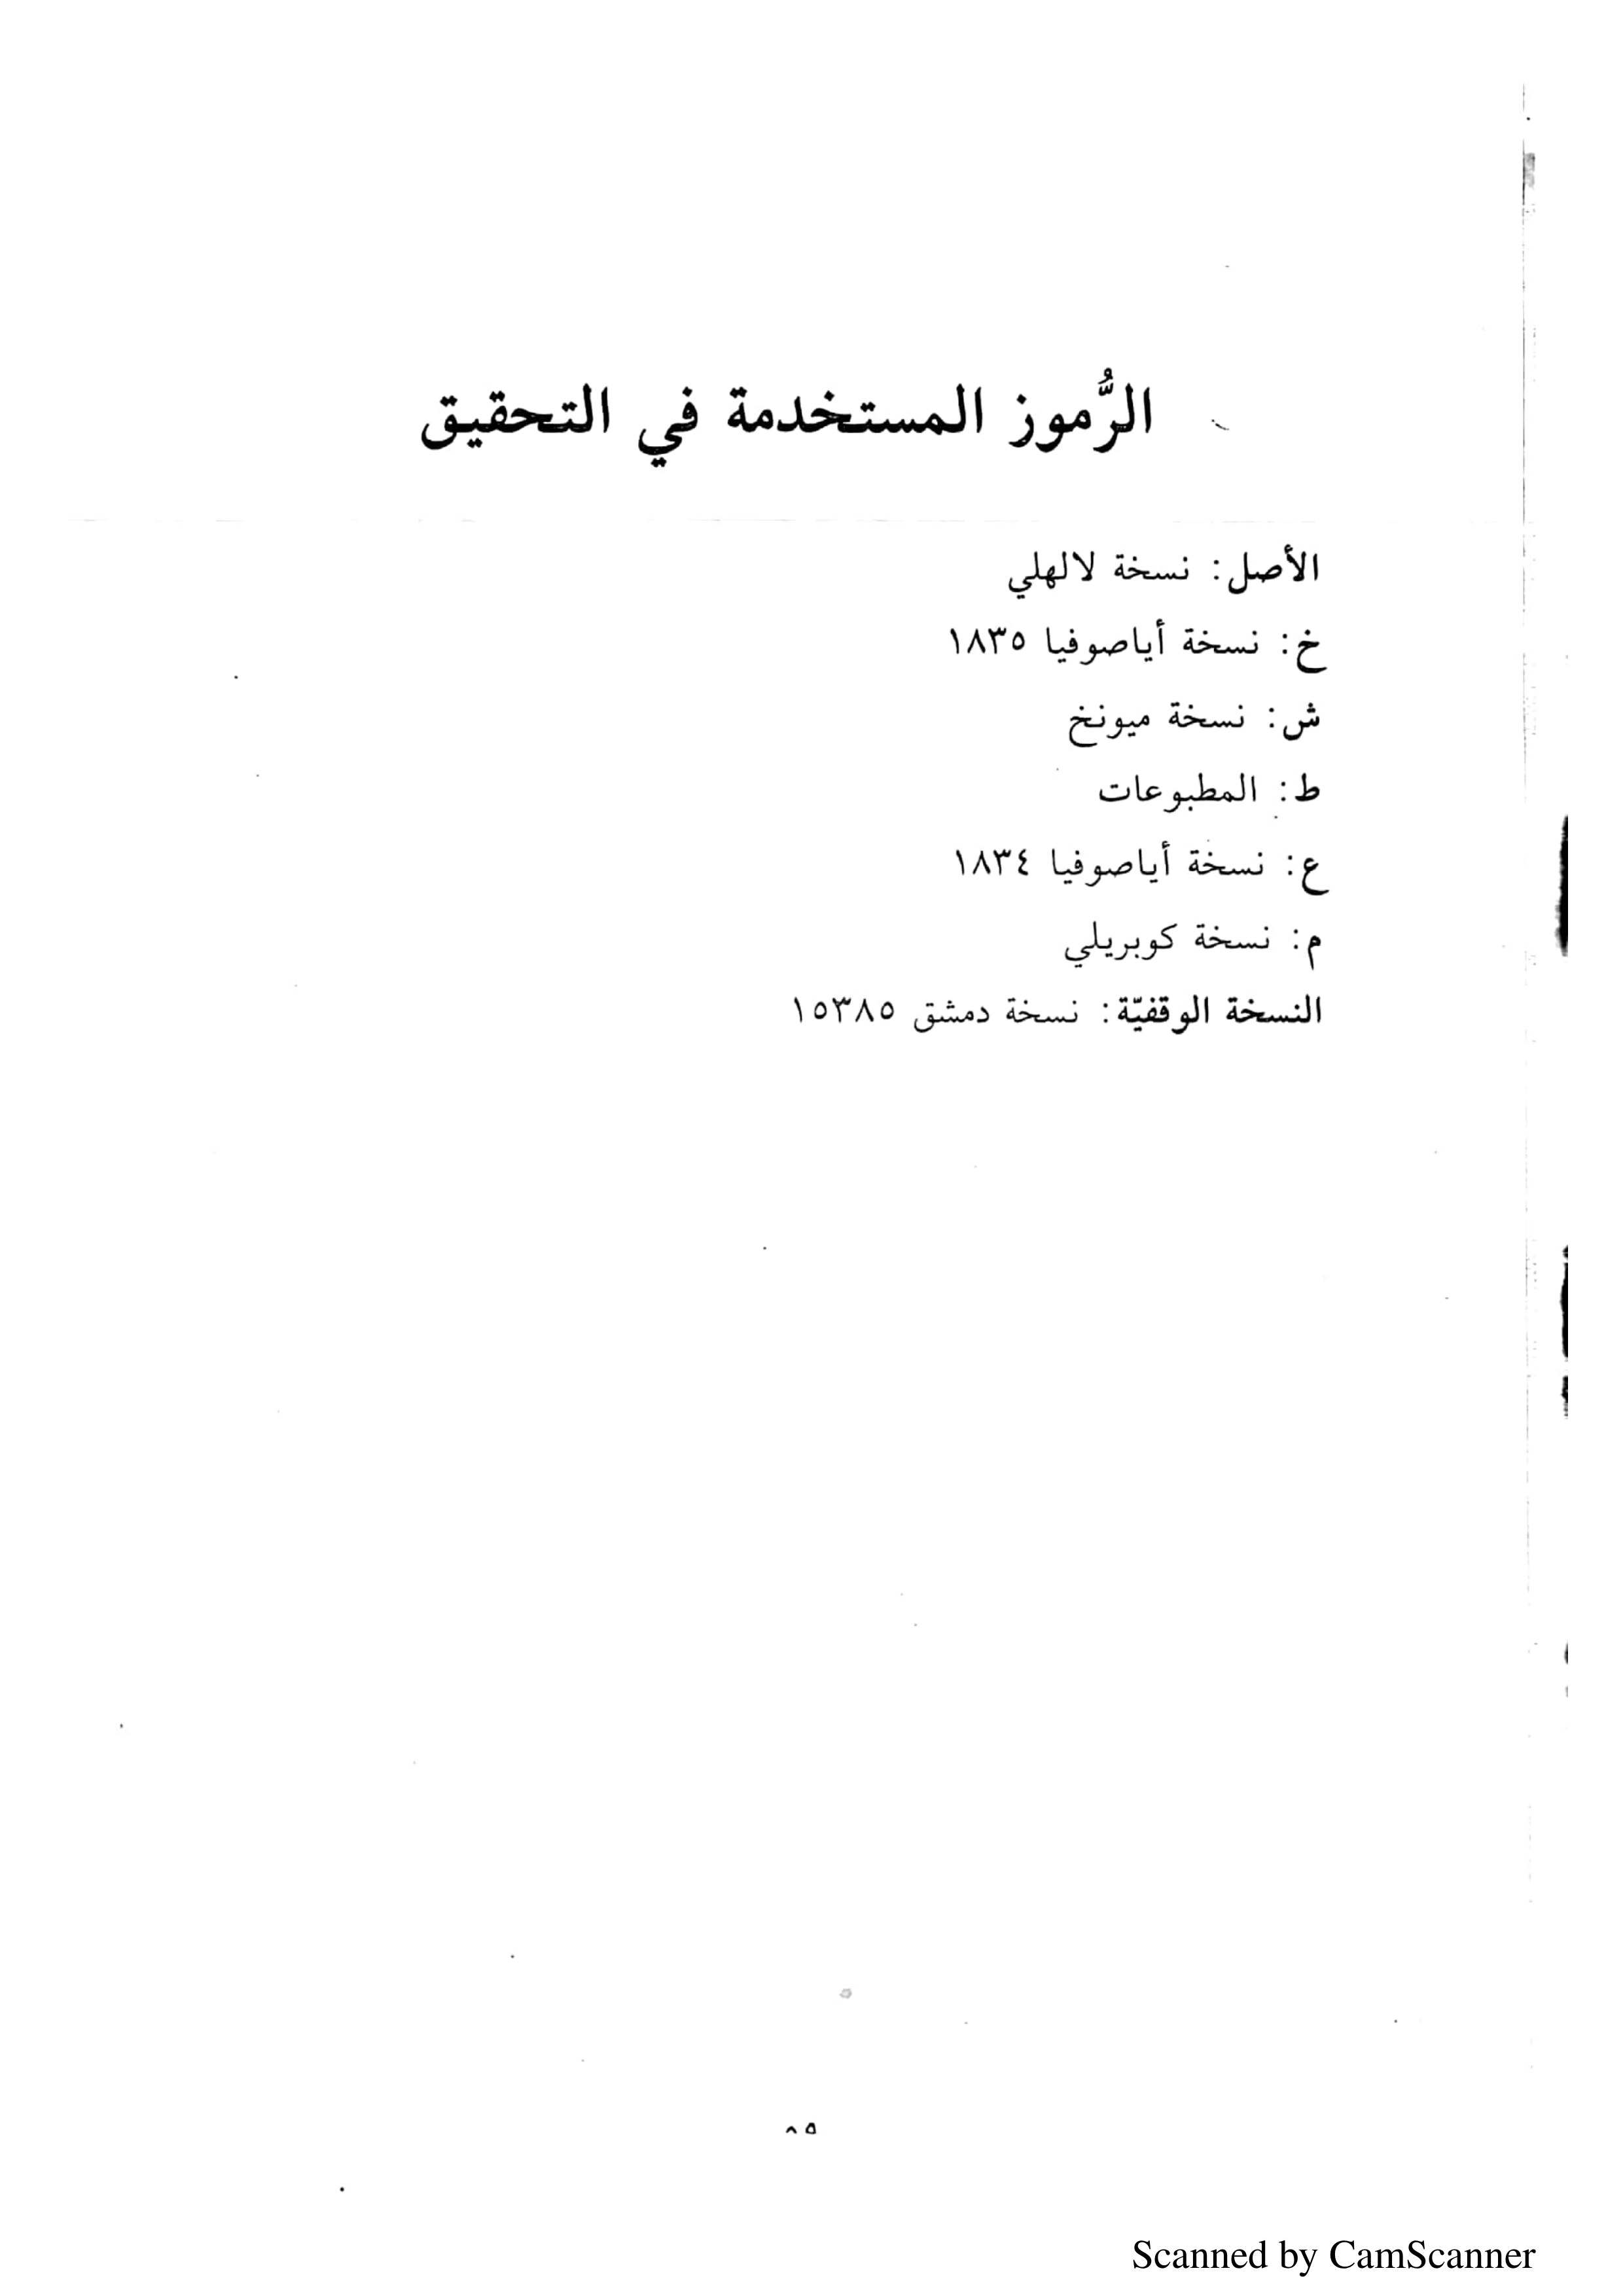 الرُّموز المستخدمة في التحقيق
الأصل: نسخة لالهلي
خ: نسخة أياصوفيا ١٨٣٥
ش: نسخة ميونخ
ط: المطبوعات
ع: نسخة أياصوفيا ١٨٣٤
م: نسخة كوبريلي
النسخة الوقفيّة: نسخة دمشق ١٥٣٨٥
٨٥
Scanned by CamScanner